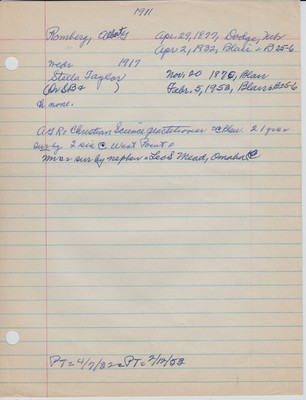 1911
Romberg, Albert G Apr. 29, 1877, Dodge, Nebr
Apr 2, 1932, Blair - B25-6
wedr 1917
Stella Taylor Nov. 20 1876, Blair
(Dr SB+ ) Febr. 5, 1953, Blair B25-6
& none.
A G R: Christian Science practitioner 21 yrs
sur by 2 sis @ West Point
Mrs sur by nephew - Leo S Mead, Omaha
PT = 4/7/32 PT = 2/12/53